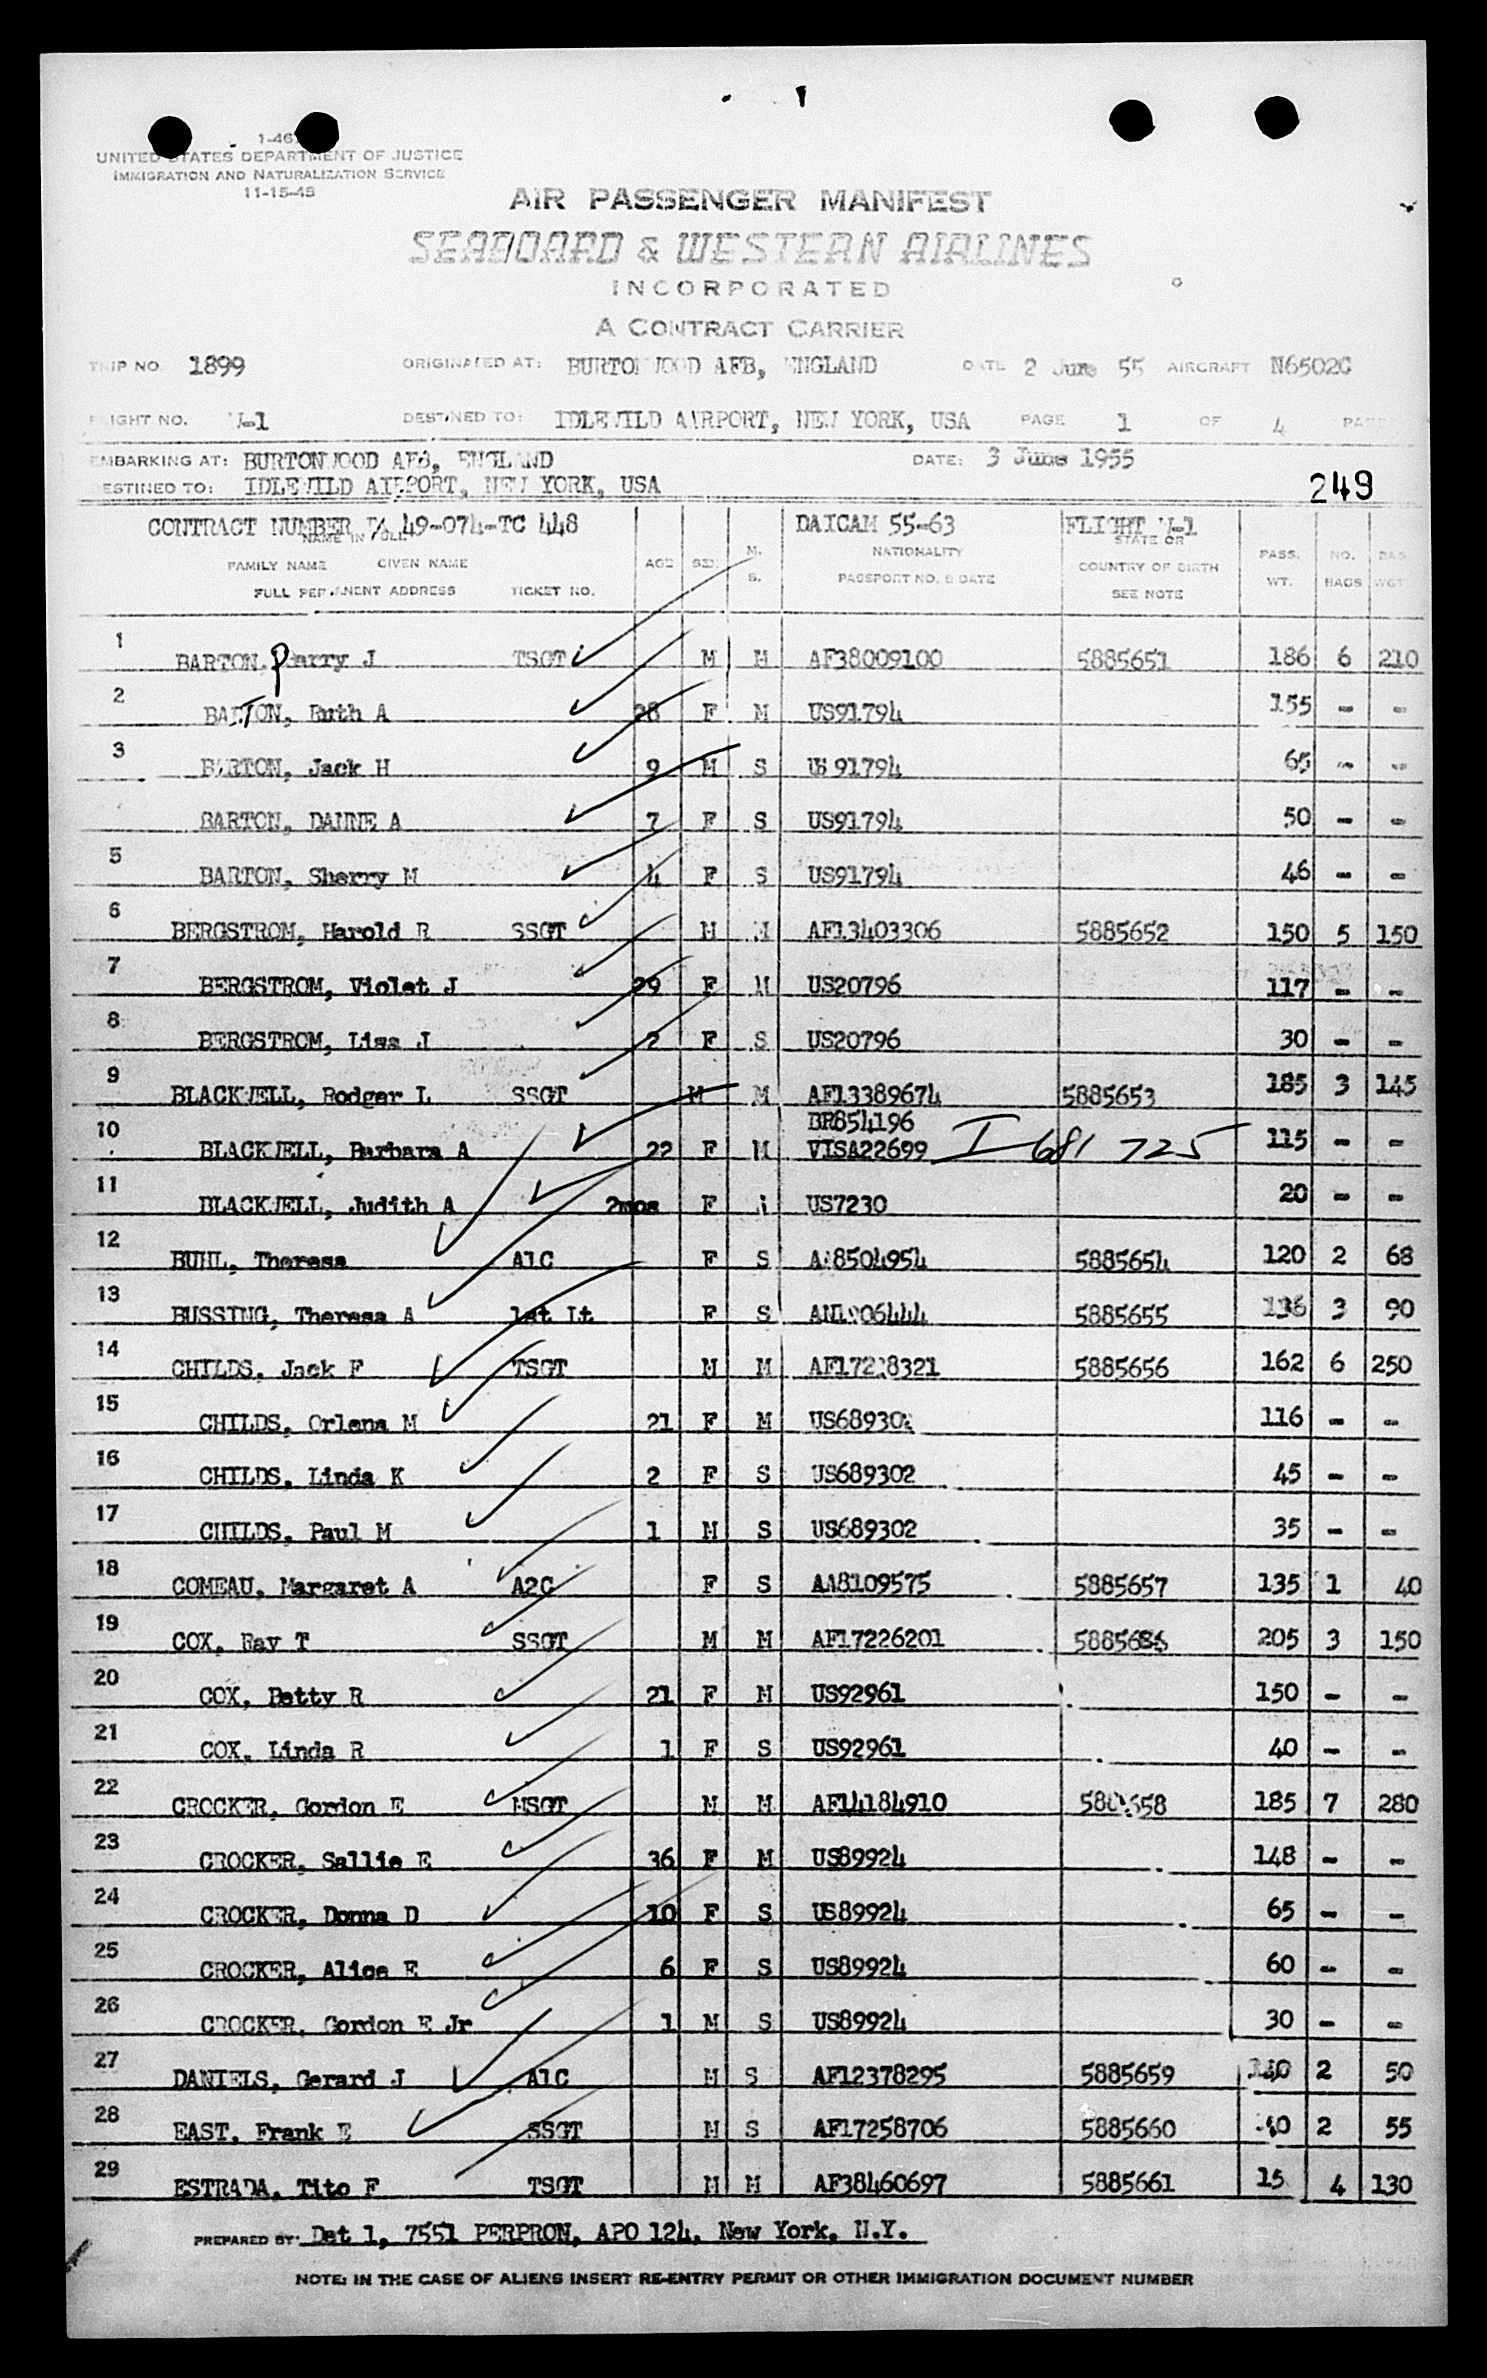 1-46
UNITED STATES DEPARTMENT OF JUSTICE
IMMIGRATION AND NATURALIZATION SERVICE
11-15-48
AIR PASSENGER MANIFEST
SEABOARD & WESTERN AIRLINES
INCORPORATED
A CONTRACT CARRIER
TRIP NO 1899 ORIGINATED AT: BURTONWOOD AFB, ENGLAND DATE 2 June 55 AIRCRAFT N6502C
FLIGHT NO. W-1 DESTINED TO: IDLEWILD AIRPORT, NEW YORK, USA PAGE 1 OF 4
EMBARKING AT: BURTONWOOD AFB, ENGLAND DATE: 3 June 1955
DESTINED TO: IDLEWILD AIRPORT, NEW YORK, USA 249
CONTRACT NUMBER 49-074-TC 448 DAICAM 55-63 FLIGHT W-1
NAME IN FULL
FAMILY NAME GIVEN NAME AGE SEX M. S. NATIONALITY STATE OR PASS. NO. BAG
FULL PERMANENT ADDRESS TICKET NO. PASSPORT NO. & DATE COUNTRY OF BIRTH WT. BAGS WGT
SEE NOTE
1 BARTON, Parry J TSGT M M AF38009100 5885651 186 6 210
2 BARTON, Ruth A 28 F M US91794 155 - -
3 BARTON, Jack H 9 M S US91794 65 - -
BARTON, DANNE A 7 F S US91794 50 - -
5 BARTON, Sherry M 4 F S US91794 46 - -
6 BERGSTROM, Harold R SSGT M M AF13403306 5885652 150 5 150
7 BERGSTROM, Violet J 29 F M US20796 117 - -
8 BERGSTROM, Lisa J 2 F S US20796 30 - -
9 BLACKWELL, Rodger L SSGT M M AF13389674 5885653 185 3 145
10 BLACKWELL, Barbara A 22 F M BR854196 VISA22699 I-681 725 115 - -
11 BLACKWELL, Judith A 2mos F US7230 20 - -
12 BUHL, Theresa A1C F S AA8504954 5885654 120 2 68
13 BUSSING, Theresa A 1st Lt F S 5885655 136 3 90
14 CHILDS, Jack F TSGT M M 5885656 162 6 250
15 CHILDS, Orlena M 21 F M US689302 116 - -
16 CHILDS, Linda K 2 F S US689302 45 - -
17 CHILDS, Paul M 1 M S US689302 35 - -
18 COMEAU, Margaret A A2C F S AA8109575 5885657 135 1 40
19 COX, Ray T SSGT M M AF17226201 205 3 150
20 COX, Betty R 21 F M US92961 150 - -
21 COX, Linda R 1 F S US92961 40 - -
22 CROCKER, Gordon E MSGT M M AF14184910 185 7 280
23 CROCKER, Sallie E 36 F M US89924 148 - -
24 CROCKER, Donna D 10 F S US89924 65 - -
25 CROCKER, Alice E 6 F S US89924 60 - -
26 CROCKER, Gordon E Jr 1 M S US89924 30 - -
27 DANIELS, Gerard J A1C M S AF12378295 5885659 2 50
28 EAST, Frank E SSGT M S AF17258706 5885660 2 55
29 ESTRADA, Tito F TSGT M M AF38460697 5885661 4 130
PREPARED BY: Det 1, 7551 PERPRON, APO 124, New York, N.Y.
NOTE: IN THE CASE OF ALIENS INSERT RE-ENTRY PERMIT OR OTHER IMMIGRATION DOCUMENT NUMBER